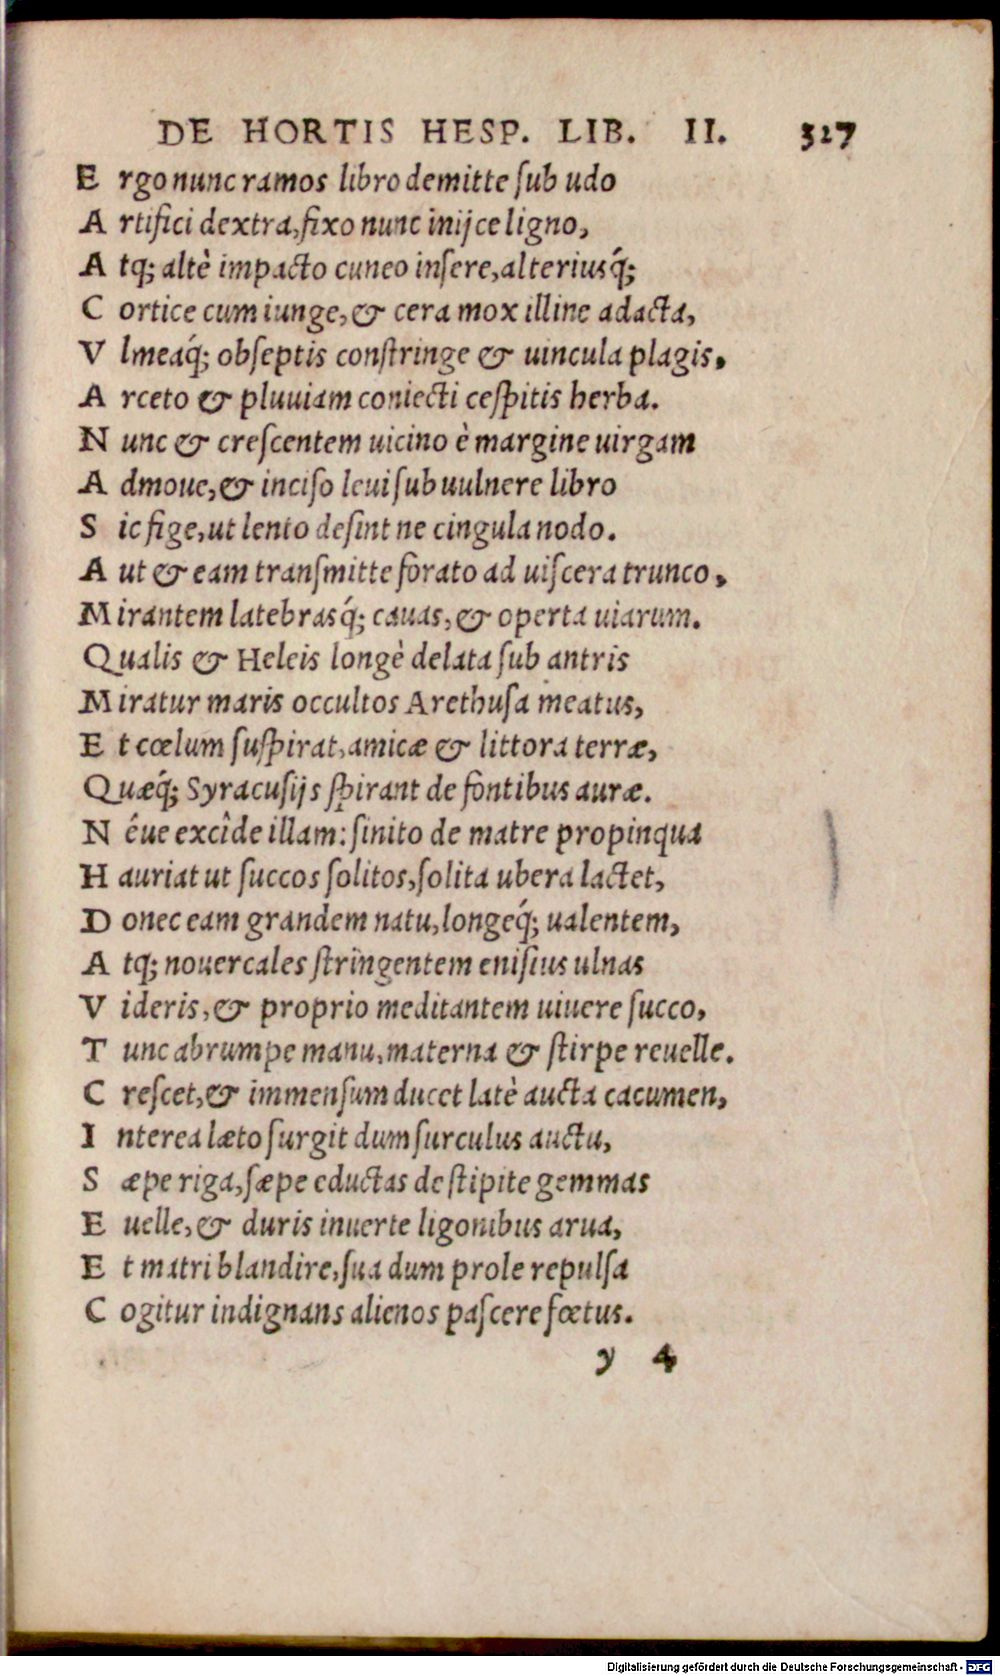 DE HORTIS HESP. LIB. II. 327
E rgo nunc ramos libro demitte ſub udo
A rtifici dextra, fixo nunc inijce ligno,
A tq; altè impacto cuneo inſere, alteriusq́;
C ortice cum iunge, & cera mox illine adacta,
V lmeaq́; obſeptis conſtringe & uincula plagis,
A rceto & pluuiam coniecti ceſpitis herba.
N unc & creſcentem uicino è margine uirgam
A dmoue, & inciſo leui ſub uulnere libro
S ic fige, ut lento deſint ne cingula nodo.
A ut & eam tranſmitte forato ad uiſcera trunco,
M irantem latebrasq́; cauas, & operta uiarum.
Qualis & Heleis longè delata ſub antris
M iratur maris occultos Arethuſa meatus,
E t cœlum ſuſpirat, amicæ & littora terræ,
Quæq́; Syracuſijs ſpirant de fontibus auræ.
N êue excîde illam: ſinito de matre propinqua
H auriat ut ſuccos ſolitos, ſolita ubera lactet,
D onec eam grandem natu, longeq́; ualentem,
A tq; nouercales ſtringentem eniſius ulnas
V ideris, & proprio meditantem uiuere ſucco,
T unc abrumpe manu, materna & ſtirpe reuelle.
C reſcet, & immenſum ducet latè aucta cacumen,
I nterea læto ſurgit dum ſurculus auctu,
S æpe riga, ſæpe eductas de ſtipite gemmas
E uelle, & duris inuerte ligonibus arua,
E t matri blandire, ſua dum prole repulſa
C ogitur indignans alienos paſcere fœtus.
y 4
Digitalisierung gefördert durch die Deutsche Forschungsgemeinschaft - DFG